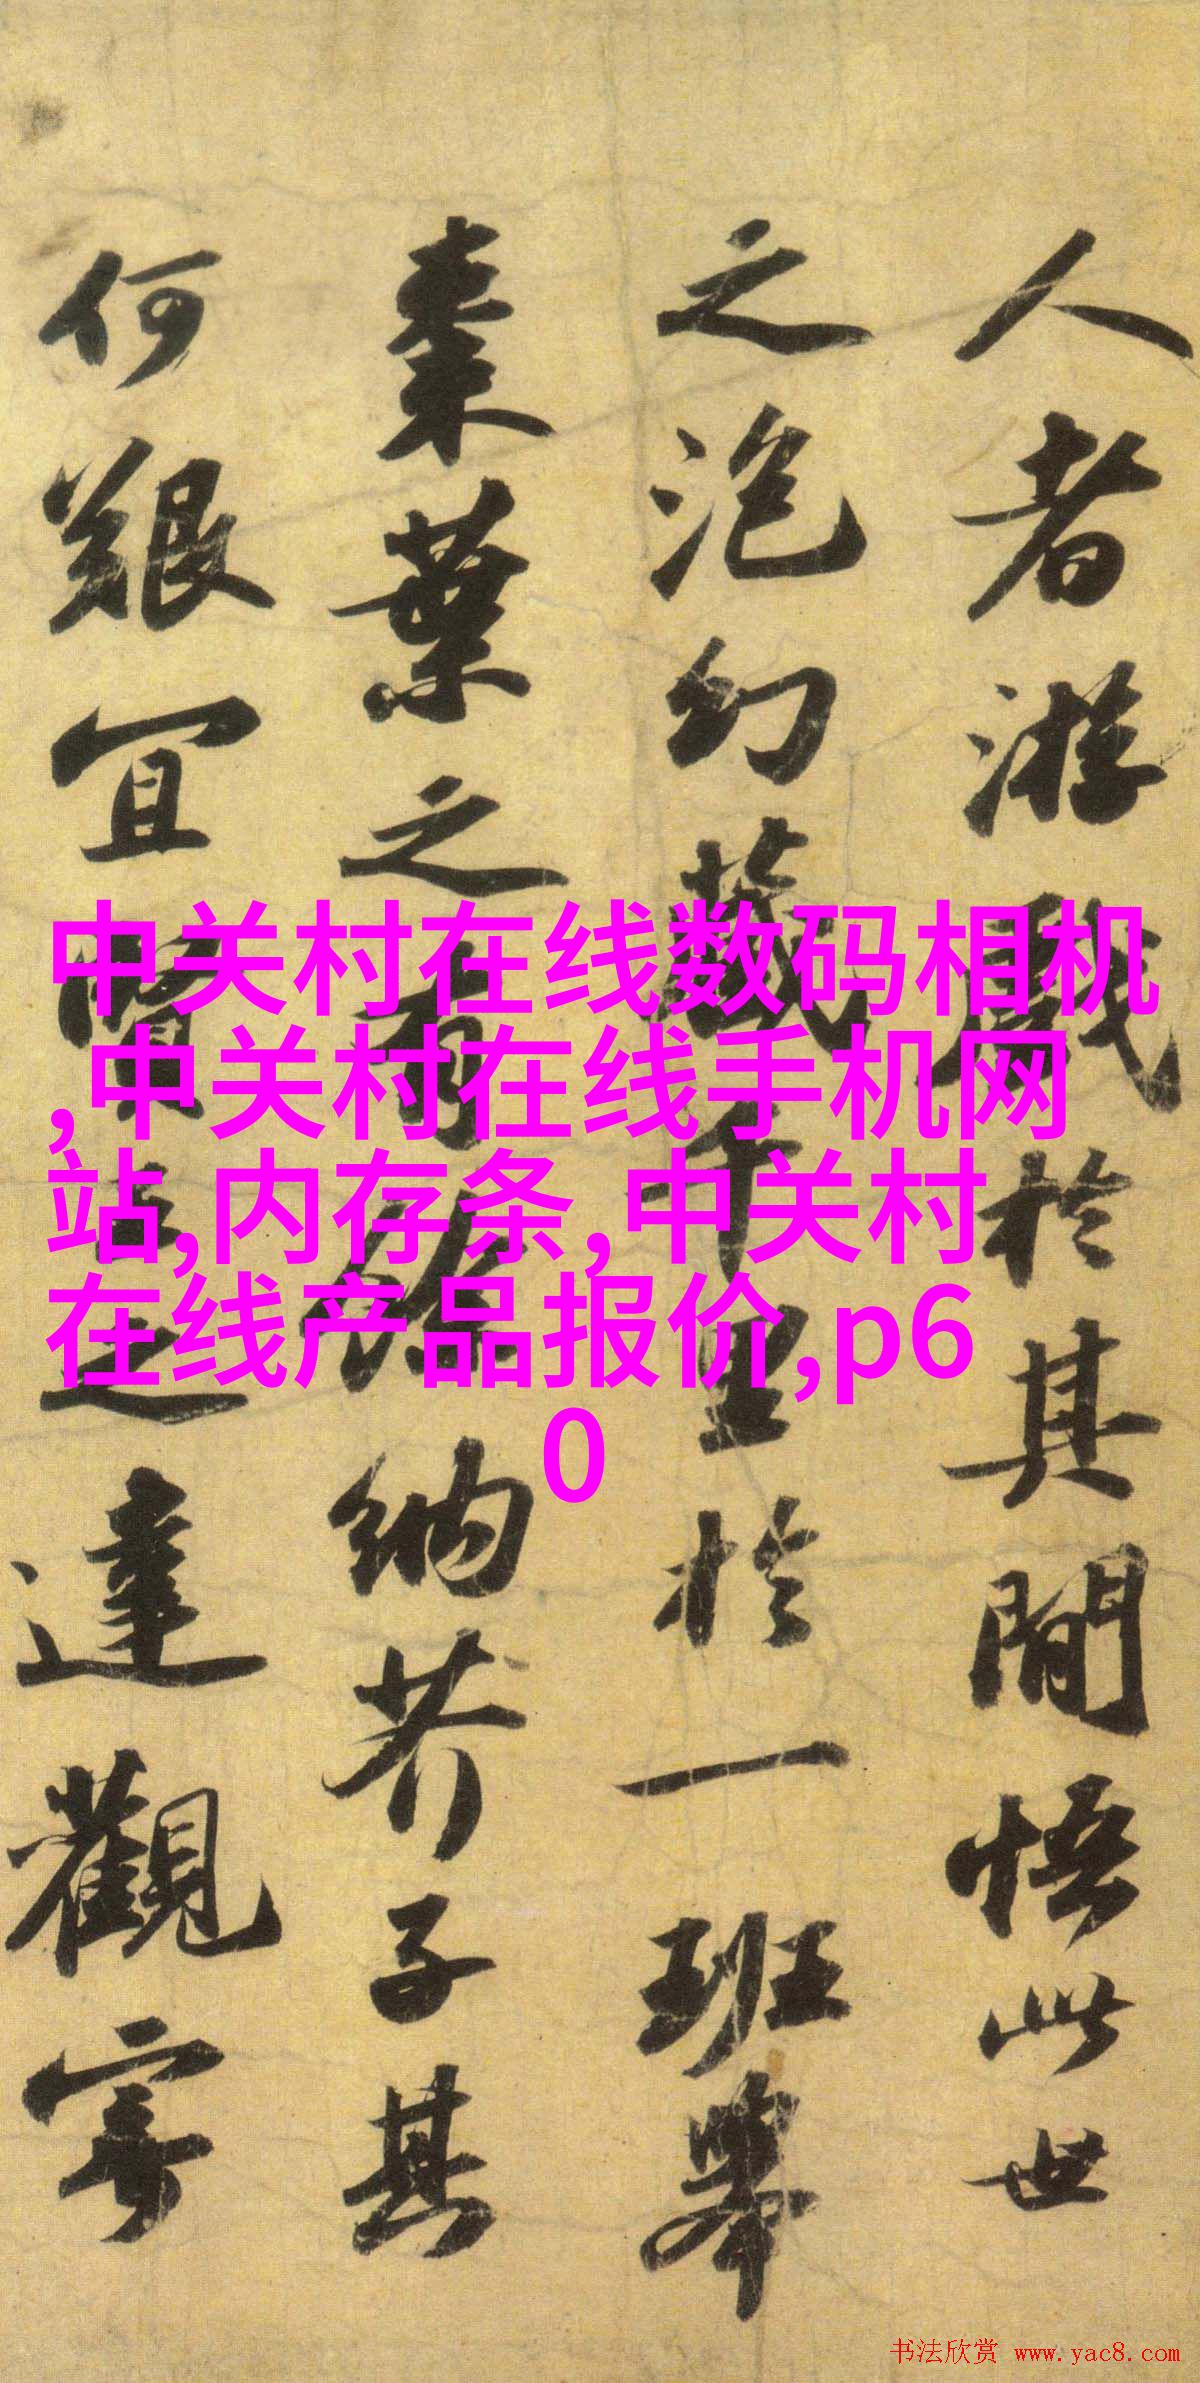 人者游戲於其間悟此世
之泡幻藏千里於一班舉
棗葉之有餘納芥子其
何艱宜賢王之達觀寄
中关村在线数码相机
,中关村在线手机网
站,内存条,中关村
在线产品报价,p6
0
书法欣赏 www.yac8.com